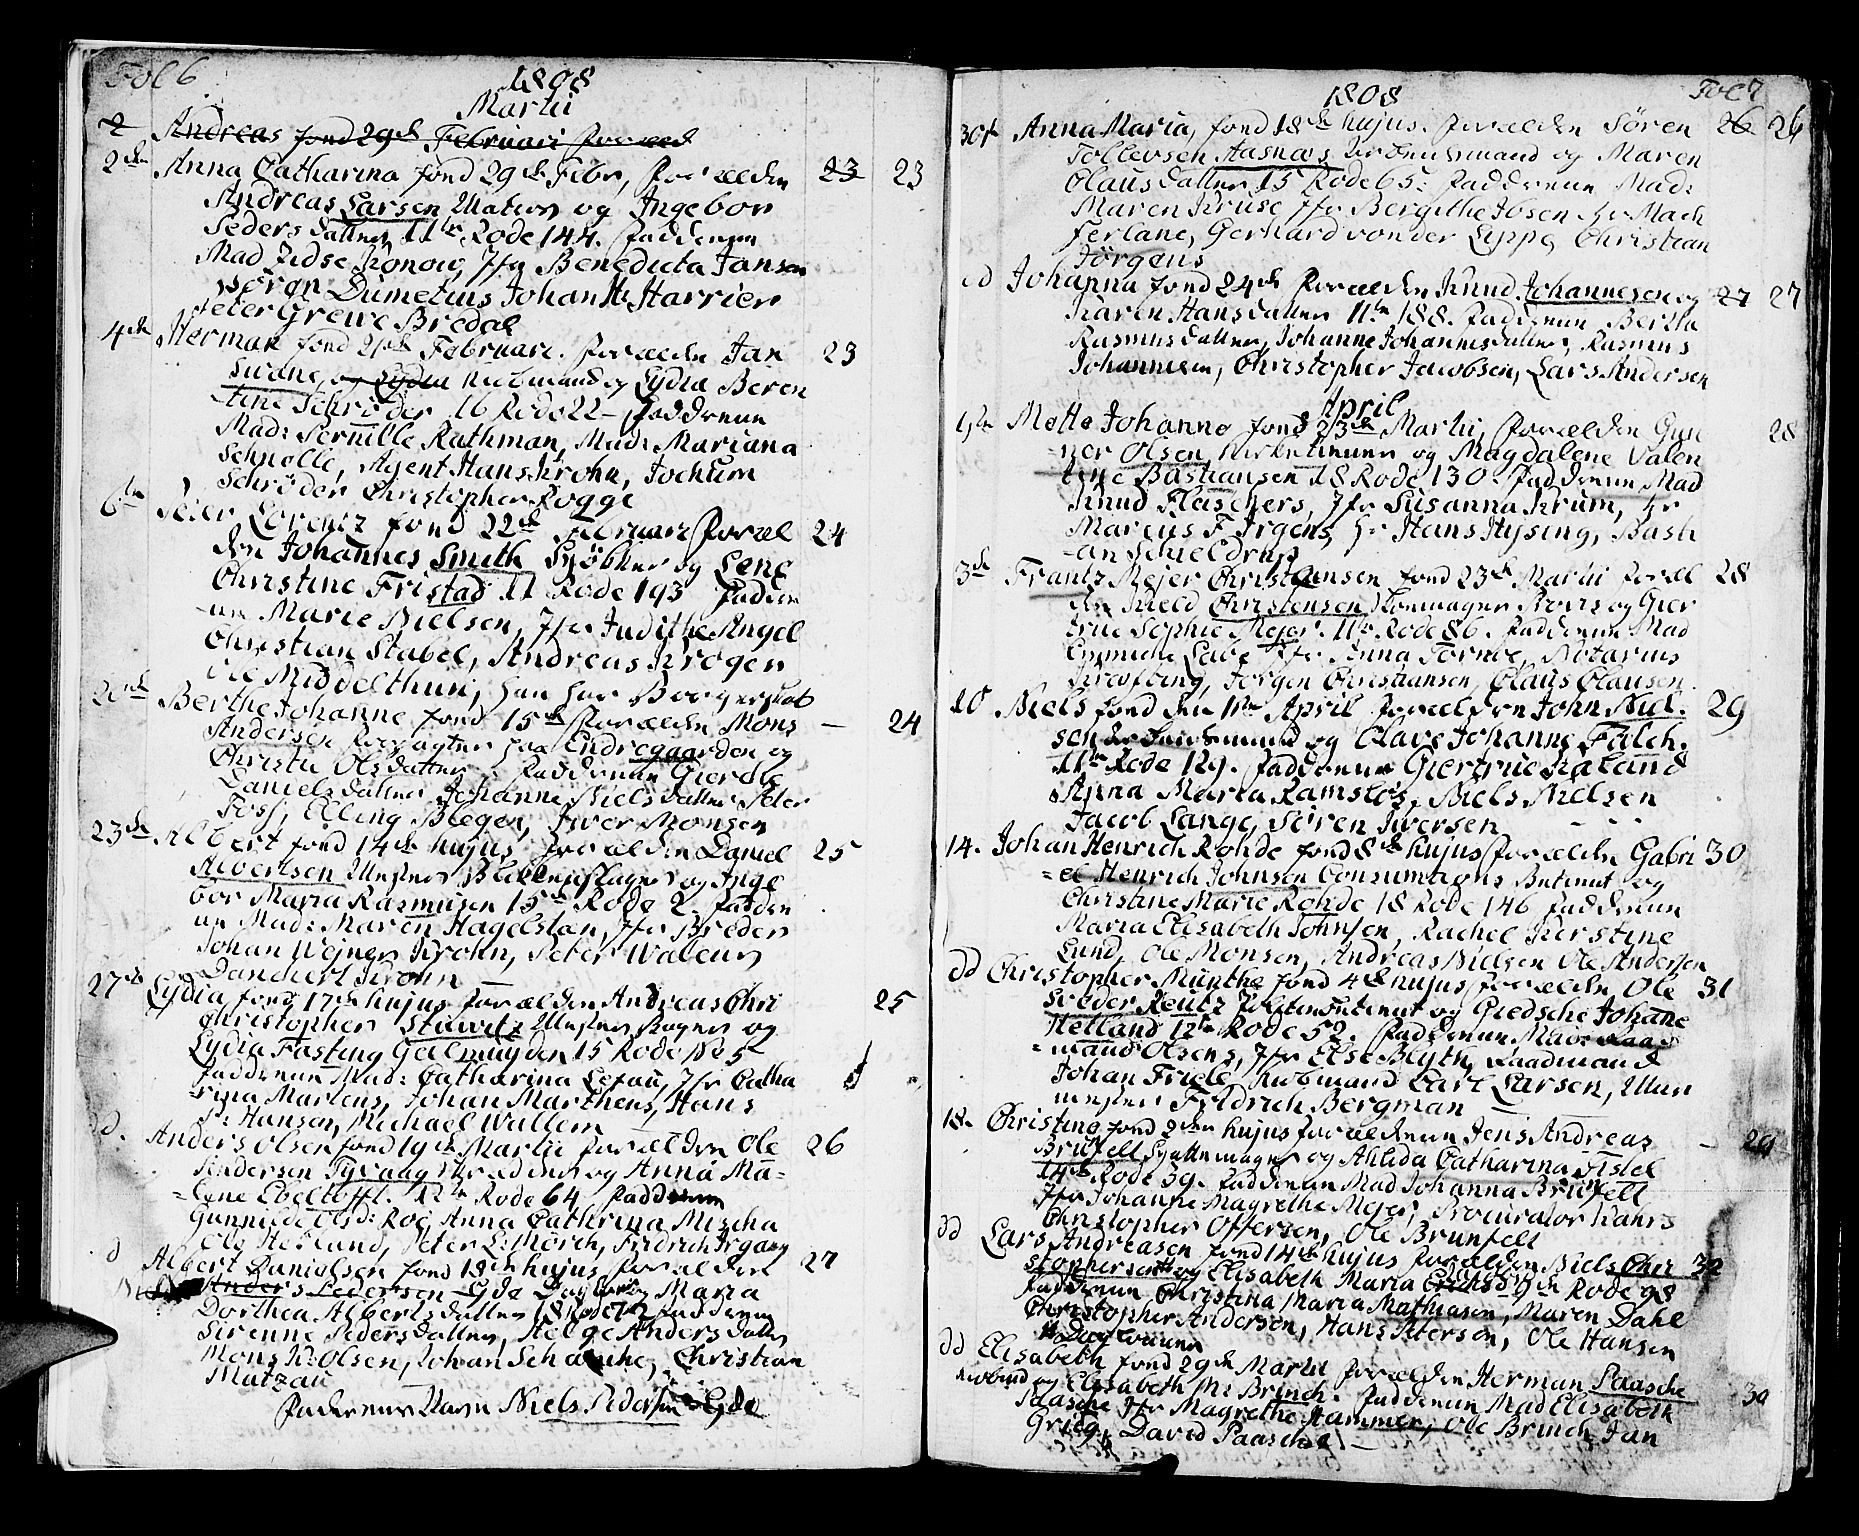 Fol 6
1808
Martii
2 Andreas fond 29de Februari foræld
2den Anna Catharina fond 29de Febr, Forælden 23 23
Andreas Larsen Matros og Ingebor
Peders datter 11te Rode 144. Fadderne
Mad Jidse Konow, Jfr Benedicta Jansen
Jörgn Dumetius Johan H: Harrier
Peter Greve Bredal
4de Herman fond 21de Februari. forælden Jan 23
Svane, og Lydia Kiöbmand og Lydia Beren
-tine Schröder 16 Rode 22- Fadderne
Mad: Pernille Rathman, Mad: Mariana
Schnelle, Agent Hans Krohn, Jochum
Schröder Christopher Rogge
6te Peter Lorentz fond 22de Februari Foræl 24
den Johannes Smith Snöbker og Lene
Christine Fristad 11 Rode 193 Fadder
-ne Marie Nielsen, Jfr Judithe Angel
Christian Stabel, Andreas Krögen
Ole Middelthun, han har Borgerskab
20de Berthe Johanne fond 15de Forælden Mons - 24
Andersen Forpagter paa Endregaarden og
Christie Olsdatter. Fadderne Gierdle
Daniels datter Johanne Niels datter Peter
Foss, Elling Blegen, Iver Monsen
23de Albert fond 14de hujus, forælden Daniel 25
Albertsen Mester Blikkenslager og Inge
bor Maria Rasmusen 15de Rode 2. Fadder
ne Mad: Maren Hagelstan, Jfr Breder
Johan Wejner Krohn, Peter Waleur
Danckert Krohn
27de Lydia fond 17de hujus forælden Andreas Chri 25
christopher Stuwitz Mester Bager og
Lydia Fasting Geelmuyden 15 Rode No 5
Fadderne Mad: Catharina Lefau, Jfr Catha
rina Martens, Johan Marthens, Hans
P: Hansen, Michael Wallem
dd. Anders Olsen fond 19de Martii forælden Ole 26
Andersen og Anna Ma-
-lene Ebeltofft. 12te Rode 64 Fadderne
Gunnilde Olsd: Roe, Anna Cathrina Mischa
Ole Helland, Peter L: Mörch, Fridrich Irgang
d Albert Danielsen fond 18de hujus forælden 27
Niels Anders Pedersen Eide Dagkarl og Maria
Dorthea Alberts datter 18 Rode 12 Fadderne
Sirenne Peders datter, Helge Anders datter
Mons K: Olsen, Johan Schasche, Christian
Matzau
Faderens Navn Niels Pedersen Eide
1808 Fol 7
30te Anna Maria, fond 18de hujus. forælden Sören 26 26
Tollevsen Aasnæs Arbeidsmand og Maren
Claus datter 15 Rode 65: Fadderne Mad:
Maren Kruse Jfr Bergithe Ibsen hr Mach
Ferlane, Gerhard vonder Lippe Christian
Jörgens
dd Johanna fond 24de forælden Knud Johannesen og 27 27
Karen Hans datter 11te 188. Fadderne Bertha
Rasmus datter, Johanne Johannis datter, Rasmus
Johannesen, Christopher Jacobsen, Lars Andersen
April
1ste Mette Johanne fond 23de Martii, forælden Gun 28
-ner Olsen, Kirketiener og Magdalene Valen
tine Bastiansen 18 Rode 130. Fadderne Mad
Knud Flaschers, Jfr Susanna Krum, hr
Marcus F Irgens, hr Hans Hysing, Basti
-an Schieldrup
3de Frantz Mejer Christensen fond 23de Martii foræl 28
den Kield Christensen Skomager Svend og Gier
true Sophie Mejer. 11te Rode 86. Fadderne Mad
Emmiche Lave Jfr Anna Tornöe, Notarius
Krøpfbing, Jörgen Christiansen, Claus Clausen
10 Niels fond den 1ste April forælderne John Niel. 29
sen Arbeidsmand og Olave Johanne Falch.
11te Rode 129. Fadderne Giertrue Raland
Anna Maria Ramstös, Niels Nielsen
Jacob Lange, Sören Iversen
14. Johan Henrich Rohde fond 8de hujus forælden Gabri 30
-el Henrich Johnsen Consumtions Betient og
Christine Marie Rohde 18 Rode 146 Fadderne
Maria Elisabeth Johnsen, Rachel Kirstine
Lund, Ole Monsen, Andreas Nielsen Ole Andersen
dd Christopher Munthe fond 4de hujus forælden Ole 31
Svöder Reutz Politiebetient og Giedsche Johane
Hetland 12te Rode 52. Fadderne Mad: Raad
-mand Olsens, Jfr Else Blyth, Raadmand
Johan Friele, Kiöbmand Carl Larsen, Muur
mester Fridrich Bergman
18. Christine fond 2den hujus forælderne Jens Andreas - 29
Brunfelt Hattemager og Ahlida Catharina Fislel
14de Rode 39. Fadderne Mad Johanna Brunfelt
Jfr Johanne Magrethe Mejer, Procurator Kahrs
Christopher Offersen, Ole Brunfelt
dd Lars Andreasen fond 14de hujus forælden Niels Chri 32
stophersen og Elisabeth Maria 9de Rode 98
Fadderne Christina Maria Mathiasen, Maren Dahl
Christopher Andersen, Hans Petersen, Ole Hansen
dd Elisabeth fond 29de Martii forælden Herman Paasche
Kiöbmd og Elisabeth M: Brinch. Fadderne Mad Elisabeth 30
Paasche Jfr Magrethe Hammer, Ole Brinch, Jan
Grieg, David Paasche